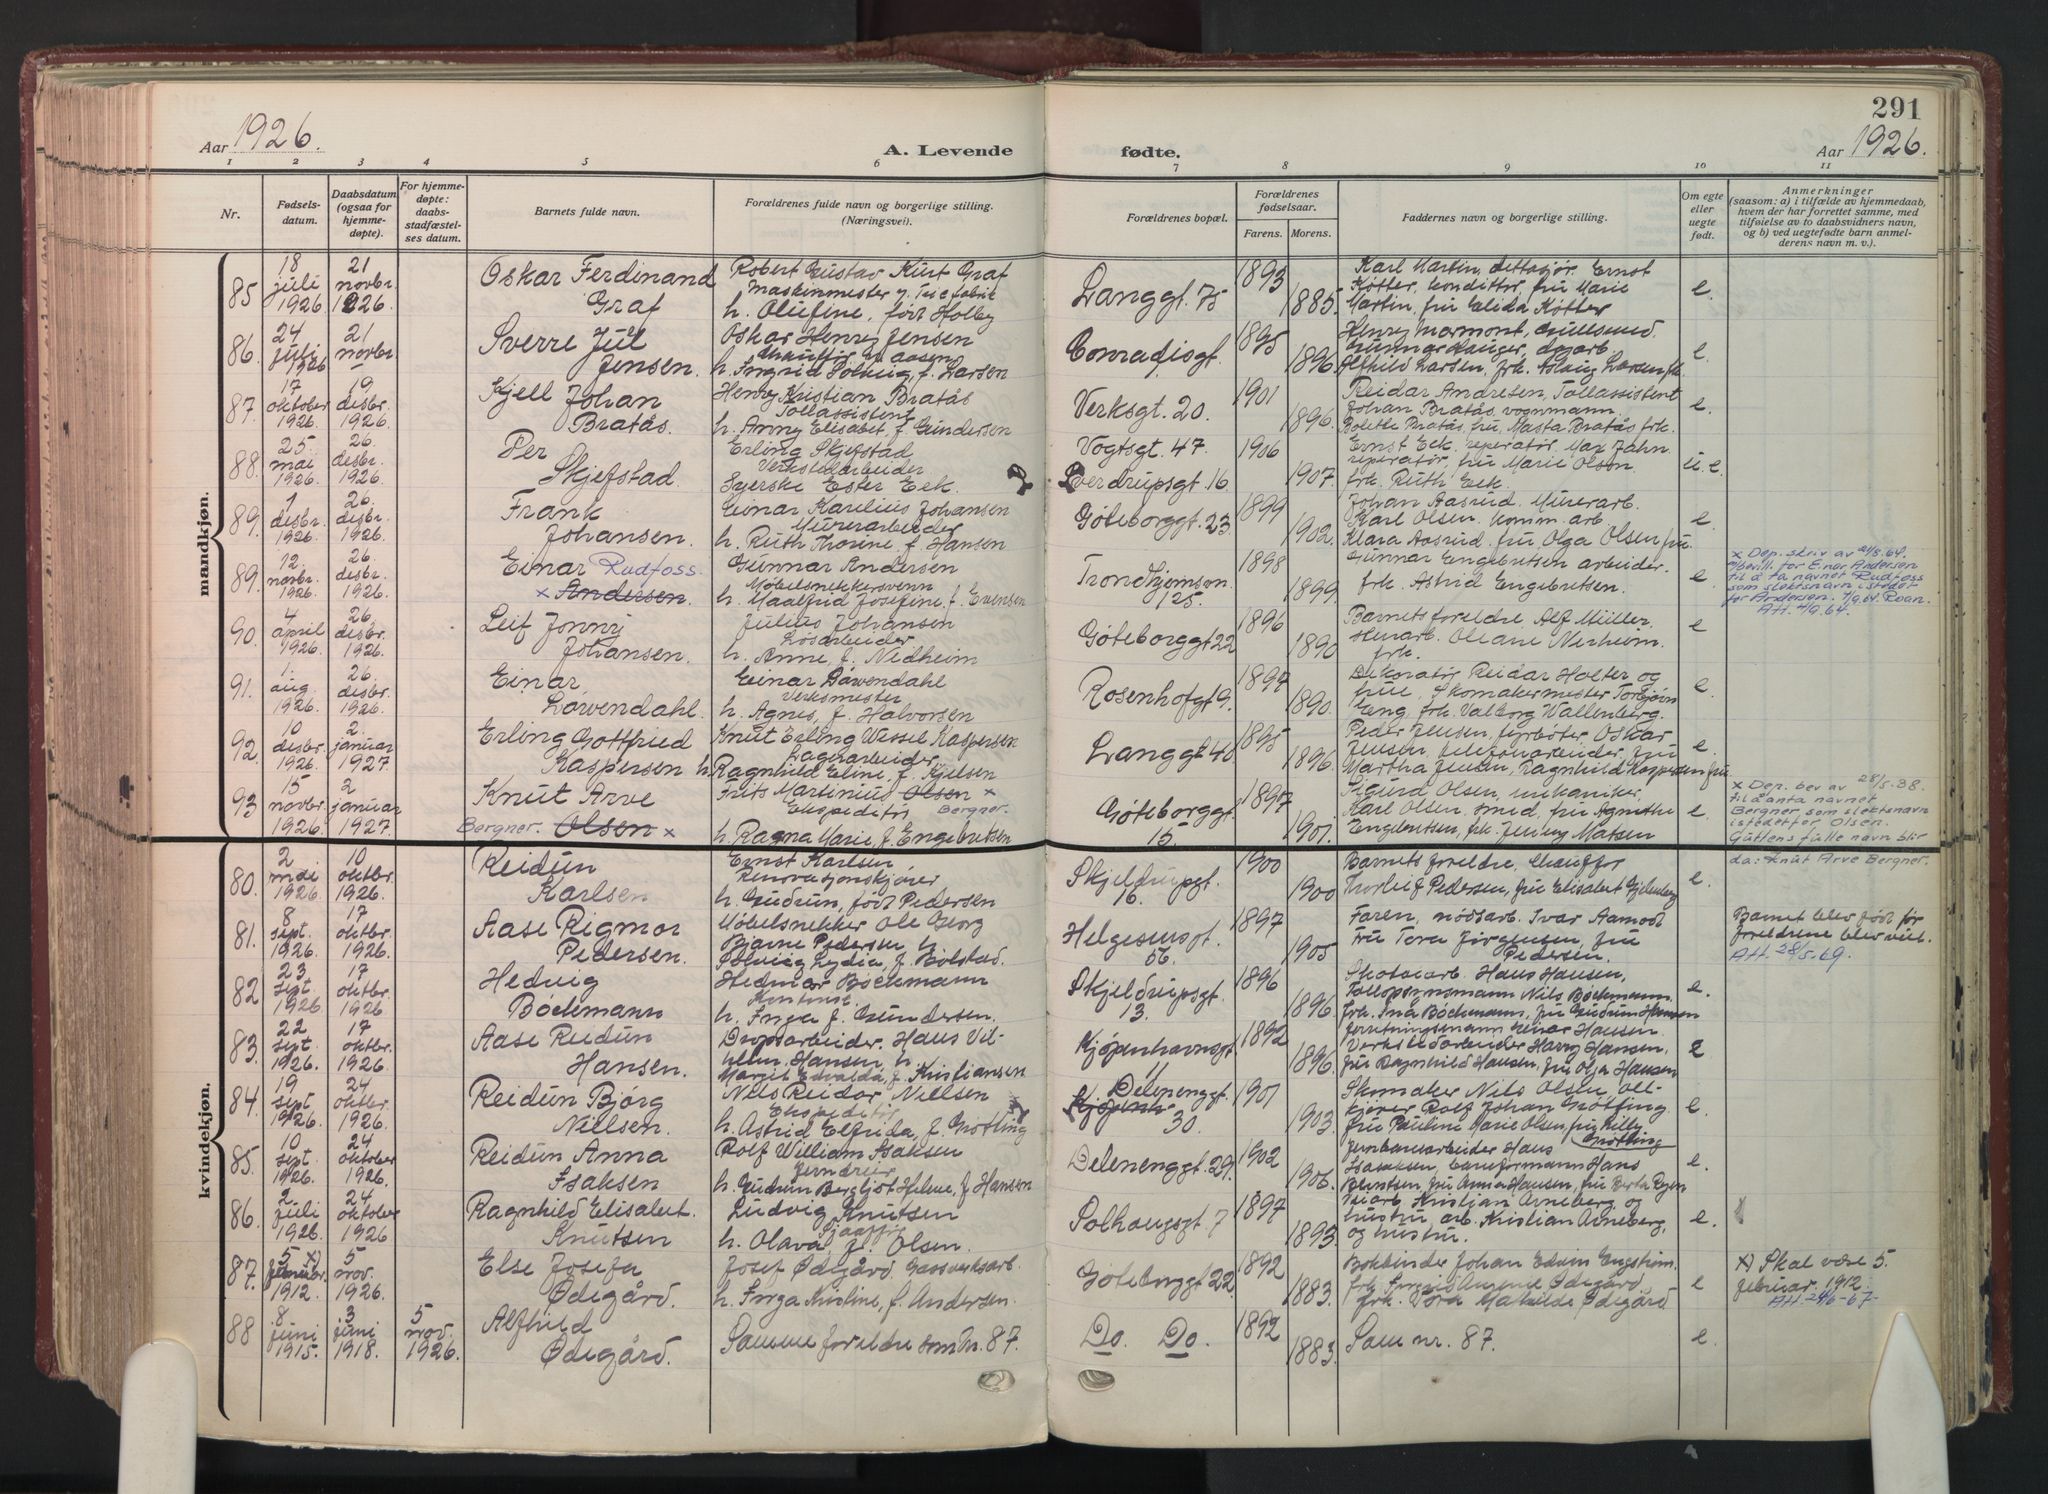 291
Aar 1926.
A. Levende
fødte.
Aar 1926.
1 2 3 4 5 6 7 8 9 10 11
Nr.
Fødsels-
datum.
Daabsdatum
(ogsaa for
hjemme-
døpte).
For hjemme-
døpte:
daabs-
stadfæstel-
ses datum.
Barnets fulde navn.
Forældrenes fulde navn og borgerlige stilling.
(Næringsvei).
Forældrenes bopæl.
Forældrenes
fødselsaar.
Farens. Morens.
Faddernes navn og borgerlige stilling.
Om egte
eller
uegte
født.
Anmerkninger
(saasom: a) i tilfælde av hjemmedaab,
hvem der har forrettet samme, med
tilføielse av to daabsvidners navn,
og b) ved uegtefødte barn anmel-
derens navn m. v.).
mandkjøn.
85 18 juli 1926 21 novbr. 1926
Oskar Ferdinand
Graf
Robert Gustav Kurt Graf
Maskinmester
h. Olufine, født Holby
Langgt. 75
1893
1885
Karl Martin,
Ernst
Køtter, konditor, fru Marie
Martin, fru Elida Køtter
e.
86. 24 juli 1926 21 novbr.
Sverre Jul
Jensen.
Oskar Henry Jensen
h. Ingrid Solveig, f. Larsen
Conradisgt.
1895
1896
Henry Marmont,
Alfhild Larsen, frk. Aslaug
e.
87. 17 oktober 1926. 19 desbr. 1926.
Kjell Johan
Bratås.
Henry Kristian Bratås
Tollassistent
h. Anny Elisabet f. Gundersen
Verksgt. 20.
1901
1896.
Reidar Andresen, Tollassistent
Johan Bratås, vognmann.
Bolette Bratås, fru, Masta Bratås frk.
e.
88. 25. mai 1926. 26. desbr. 1926.
Per
Skjefstad.
Erling Skjefstad
Verkstedarbeider
Syerske Ester Eek.
Vogtsgt. 47.
Sverdrupsgt. 16
1906
1907.
Ernst Eek, reparatør, Max Jahn
reparatør, fru Marie Olson.
frk. Ruth Eek.
u. e.
89. 1 desbr. 1926. 26. desbr. 1926.
Frank
Johansen.
Einar Karelius Johansen
Murerarbeider
h. Ruth Thorine f. Hansen
Gøteborggt. 23
1899
1902.
Johan Aasrud. Murerarb.
Karl Olsen. komm. arb.
Klara Aasrud. fru Olga Olsen fru.
e
89. 12. novbr. 1926 26. desbr. 1926.
Einar Rudfoss.
x Andersen.
Gunnar Andersen
Møbelsnekkersvenn
h. Maalfrid Josefine f. Evensen
Trondhjemsvn
125.
1898
1899.
Gunnar Engebretsen arbeider.
frk. Astrid Engebretsen.
e
x Dep. skriv av 21/8.64.
m/bevill. for Einar Andersen
til å ta navnet Rudfoss
som slektsnavn istedet
for Andersen. 4/9.64. Roan.
Att. 4/9.64.
90. 4 april 1926. 26. desbr. 1926.
Leif Jonny
Johansen.
Julius Johansen
Løsarbeider
h. Anne f. Nedheim
Gøteborggt 22
1896
1890
Barnets foreldre, Alf Müller.
stenarb. Oleane Nerheim.
frk.
e
91. 1. aug. 1926 26 desbr. 1926.
Einar
Løwendahl.
Einar Løwendahl
Verksmester
h. Agnes, f. Halvorsen
Rosenhofgt 9.
1897
1890.
Dekoratør Reidar Holter og
frue, Skomakermester Torbjørn
Eng, frk. Valborg Wallenberg.
e.
92. 10 desbr. 1926. 2. januar 1927.
Erling Gottfried
Kaspersen
Knut Erling Wessel Kaspersen
Lagerarbeider.
h. Ragnhild Eline. f. Kjelsen
Langgt 40
1895
1896.
Peder Jensen, fyrbøter Oskar
Jensen, telefonarbeider, fru
Martha Jensen, Ragnhild Kaspersen fru
e.
93 15 novbr. 1926. 2 januar 1927.
Knut Arve
Bergner. Olsen x
Frits Martinius Olsen x
Ekspeditør Bergner.
h. Ragna Marie, f. Engebretsen
Gøteborggt.
15.
1897
1901.
Sigurd Olsen, mekaniker,
Karl Olsen smed, fru Agnethe
Engebretsen, frk. Jenny Matsen
e.
x Dep. bev av 28/5.38.
til å anta navnet
Bergner som slektsnavn
istedetfor Olsen.
Guttens fulle navn blir
da: Knut Arve Bergner.
kvindekjøn.
80. 2 mai 1926 10 oktbr. 1926.
Reidun
Karlsen
Ernst Karlsen
Renovasjonskjører
h. Gudrun, født Pedersen
Skjeldrupsgt.
16.
1900
1900
Barnets foreldre, Chauffør
Thorleif Pedersen, fru Elisabet
e.
81. 8 sept. 1926. 17 oktbr. 1926.
Aase Rigmor
Pedersen.
Møbelsnekker Ole Georg
Bjarne Pedersen, h.
Solveig Lydia, f. Bolstad.
Helgesensgt.
56.
1897
1905
Faren, nødsarb. Ivar Aamodt
Fru Tora Jørgensen, fru
Pedersen.
Barnet blev født før
foreldrene blev viet.
Att. 28/5.69.
82 23 sept. 1926 17 oktbr. 1926
Hedvig
Bøckmann
Hedmar Bøckmann
Kontorist.
h. Inga f. Gundersen.
Skjeldrupsgt.
13.
1896
1896.
Skotøiarb. Hans Hansen,
Tollopsynsmann Nils Bøckmann.
frk. Ina Bøckmann, fru Gudrun Hansen
e.
83. 22 sept 1926. 17 oktbr. 1926.
Aase Reidun
Hansen.
Dropsarbeider. Hans Vil-
helm, Hansen, h.
Margit Edvalda, f. Kristiansen
Kjøpenhavnsgt.
11
1892
1896.
forretningsmann Einar Hansen.
Verkstedarbeider Harry Hansen,
fru Ragnhild Hansen, fru Olga Hansen
e
84. 19 sept 1926. 24 oktbr. 1926.
Reidun Bjørg
Nielsen.
Nils Reidar Nielsen
Ekspeditør
h. Astrid Elfrida, f. Grøtting
Delenenggt.
30.
1901
1903.
Skomaker Nils Olsen
kjører Rolf Johan Grøtting.
fru Pauline Marie Olsen, fru Lilly
Grøtting
e.
85. 10 sept. 1926. 24 oktober 1926.
Reidun Anna
Isaksen
Rolf William Isaksen
Jerndreier
h. Gudrun Bergljot Helene, f. Hansen
Delenenggt. 29.
1902
1906.
Jernbanearbeider Hans
Isaksen, baneformann Hans
Berntsen, fru Anna Hansen, fru Berta
e.
86. 2. juli 1926. 24 oktober 1926
Ragnhild Elisabet.
Knutsen
Ludvig Knutsen
h. Olava, f. Olsen.
Solhaugsgt. 7
1897
1893.
Veiarb. Kristian Arneberg og
hustru, arb. Kristian Arneberg,
og hustru.
e.
87. 5 x) januar. 1912. 5 nov. 1926.
Else Josefa
Ødegård.
Josef Ødegård. Gassverksarb.
h. Inga Kristine, f. Andersen.
Gøteborggt 22.
1892
1883.
Bokbinder Johan Edvin Engstrøm.
frk. Ingrid Ødegård.
frk. Vera Mathilde Ødegård
e
x) Skal være 5.
februar 1912.
Att. 24/6-67-
88 8 juni 1915. 3 juni 1918. 5 nov. 1926.
Alfhild
Ødegård.
Samme foreldre som nr. 87.
Do. Do.
1892
1883.
Som nr. 87.
e